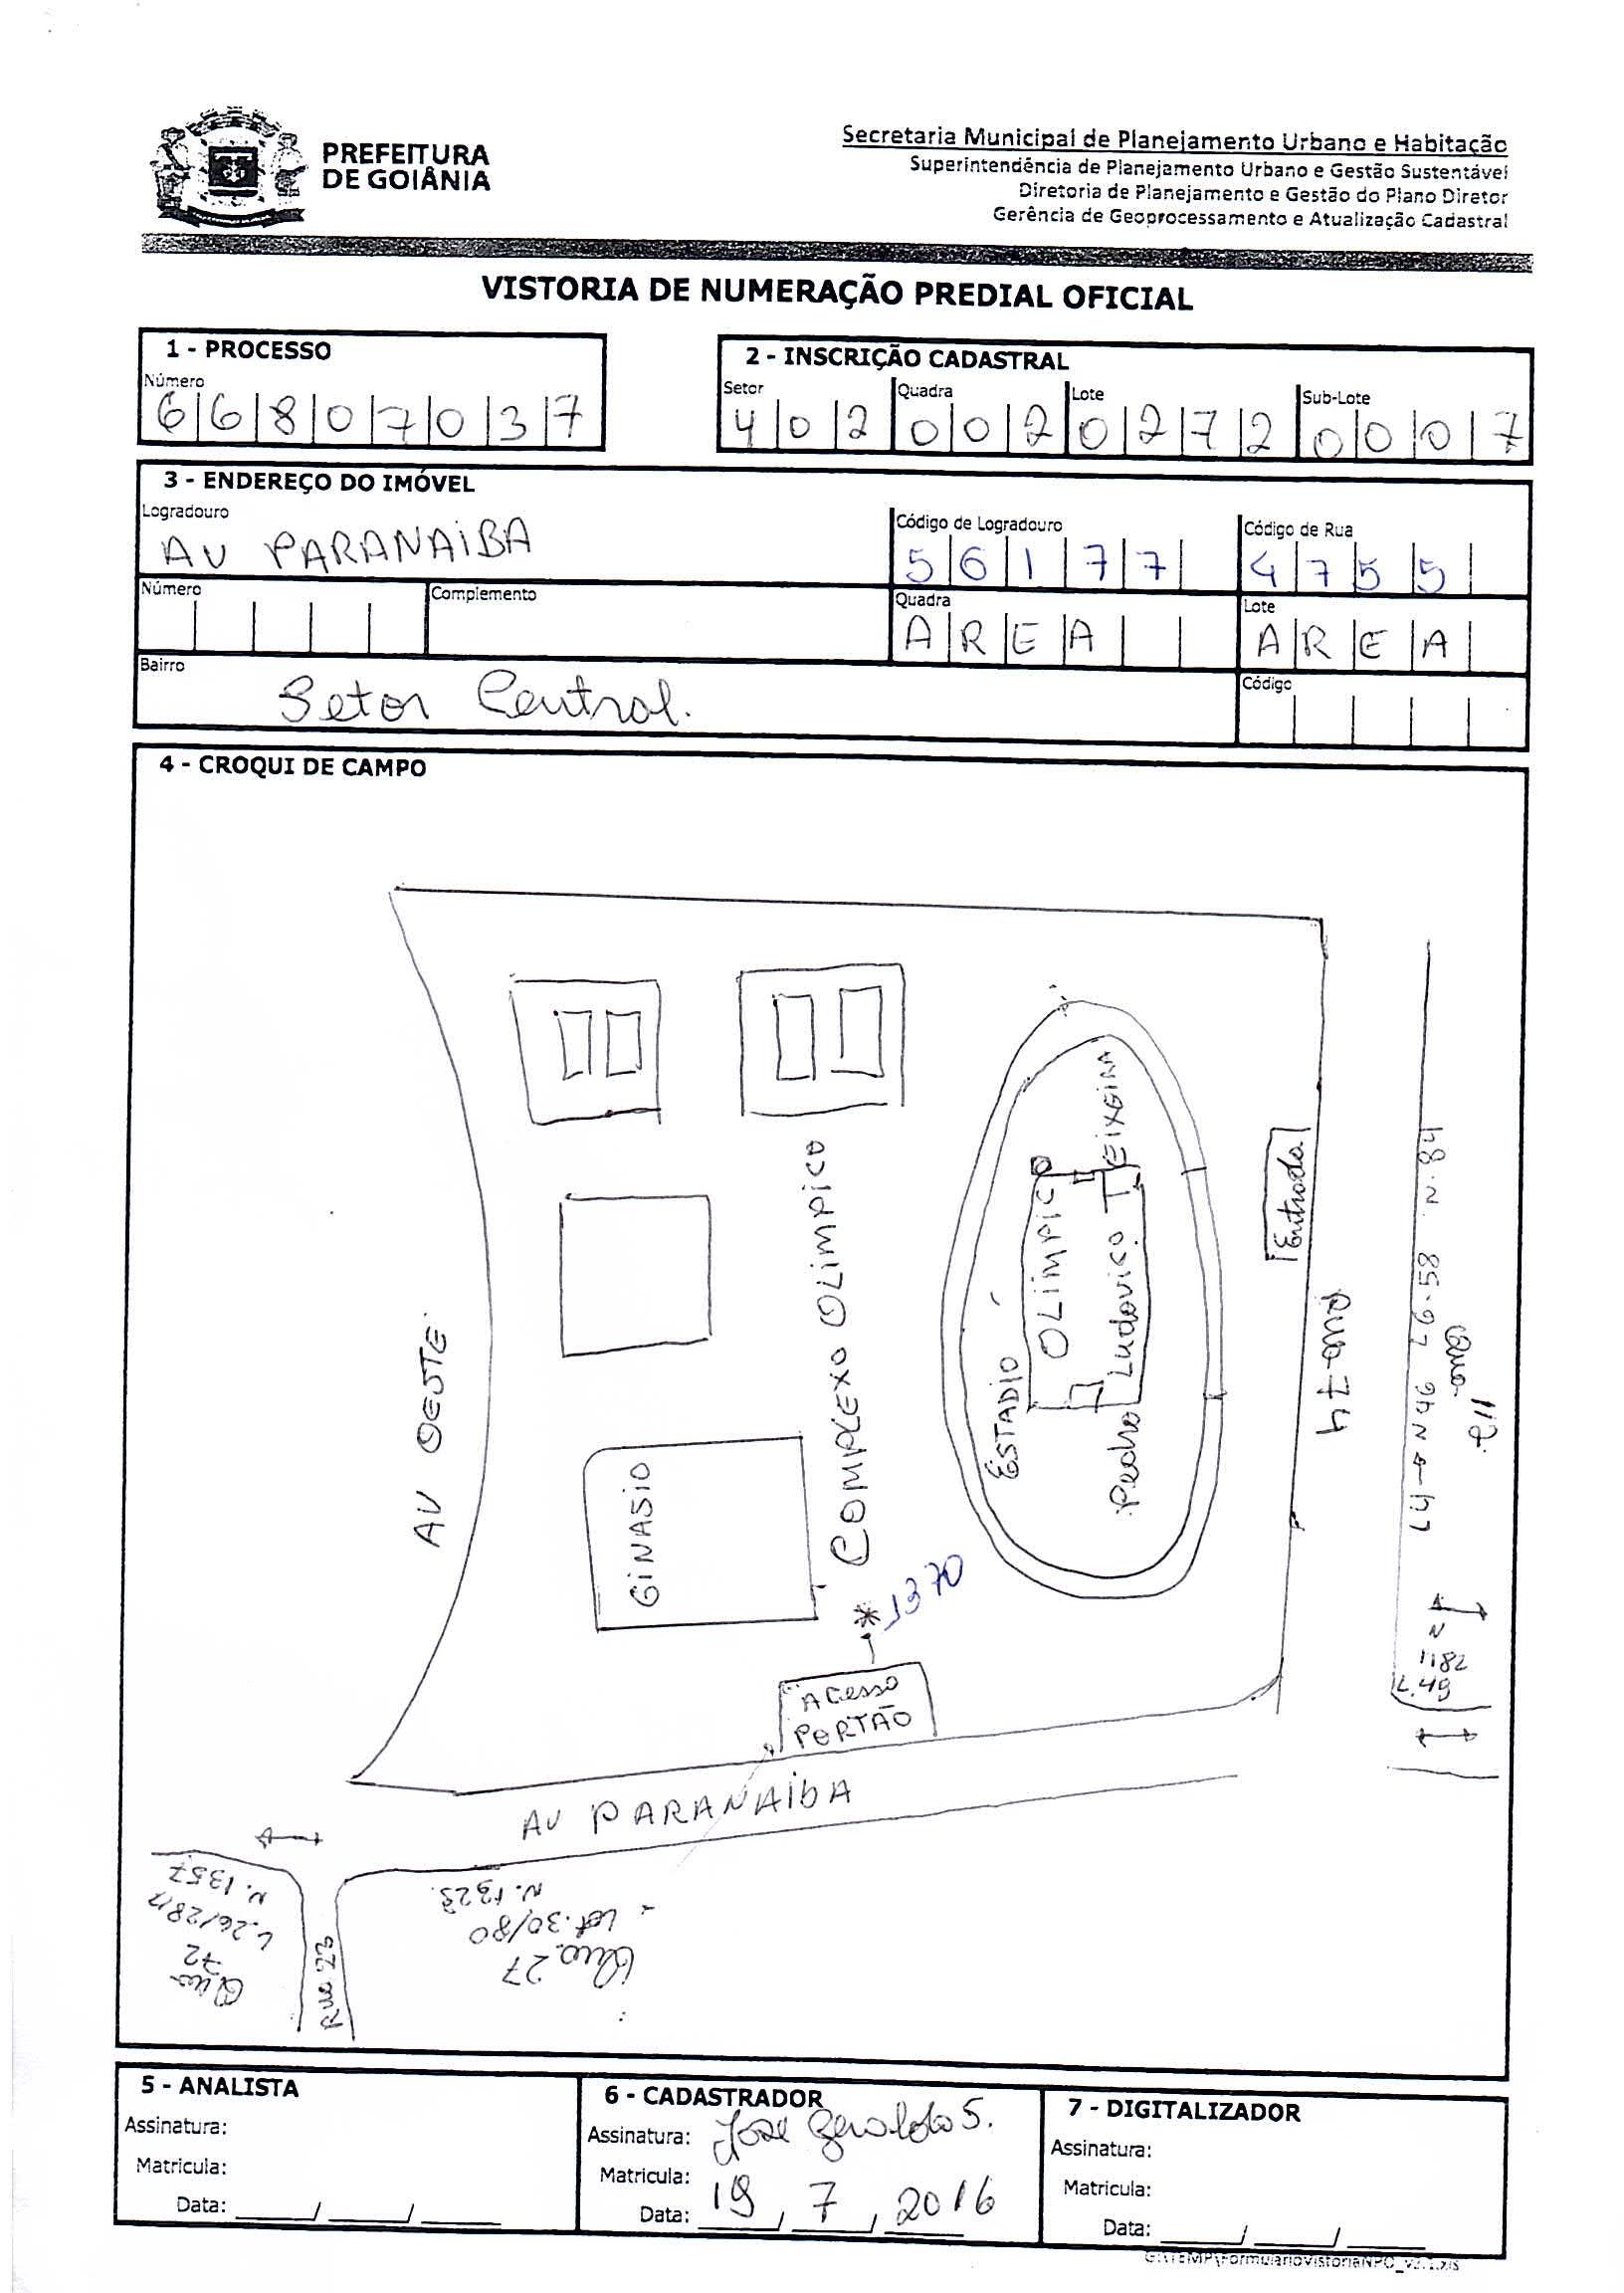 PREFEITURA
DE GOIÂNIA
Secretaria Municipal de Planejamento Urbano e Habitação
Superintendência de Planejamento Urbano e Gestão Sustentável
Diretoria de Planejamento e Gestão do Plano Diretor
Gerência de Geoprocessamento e Atualização Cadastral
VISTORIA DE NUMERAÇÃO PREDIAL OFICIAL
1 - PROCESSO
Número
66807037
2 - INSCRIÇÃO CADASTRAL
Setor Quadra Lote Sub-Lote
402 002 0272 0007
3 - ENDEREÇO DO IMÓVEL
Logradouro Código de Logradouro Código de Rua
AV PARANAIBA 56177 4755
Número Complemento Quadra Lote
AREA AREA
Bairro Código
Setor Central.
4 - CROQUI DE CAMPO
AV OESTE
GINASIO
COMPLEXO OLIMPICO
ESTADIO
OLIMPICO
Pedro Ludovico TEIXEIRA
Entrada
Rua-74
Qua. 117
N. 84
1182
L.49
* 1370
ACesso
PORTÃO
AV PARANAIBA
N. 1357
L.26/28
Qua 72
Rua 23
N. 1323
Lot. 30/80
Qua. 27
5 - ANALISTA
Assinatura:
Matricula:
Data: ____/____/____
6 - CADASTRADOR
Assinatura: José Geraldo S.
Matricula:
Data: 19/7/2016
7 - DIGITALIZADOR
Assinatura:
Matricula:
Data: ____/____/____
G:\TEMP\FormularioVistoriaNPO_v3.1.xls